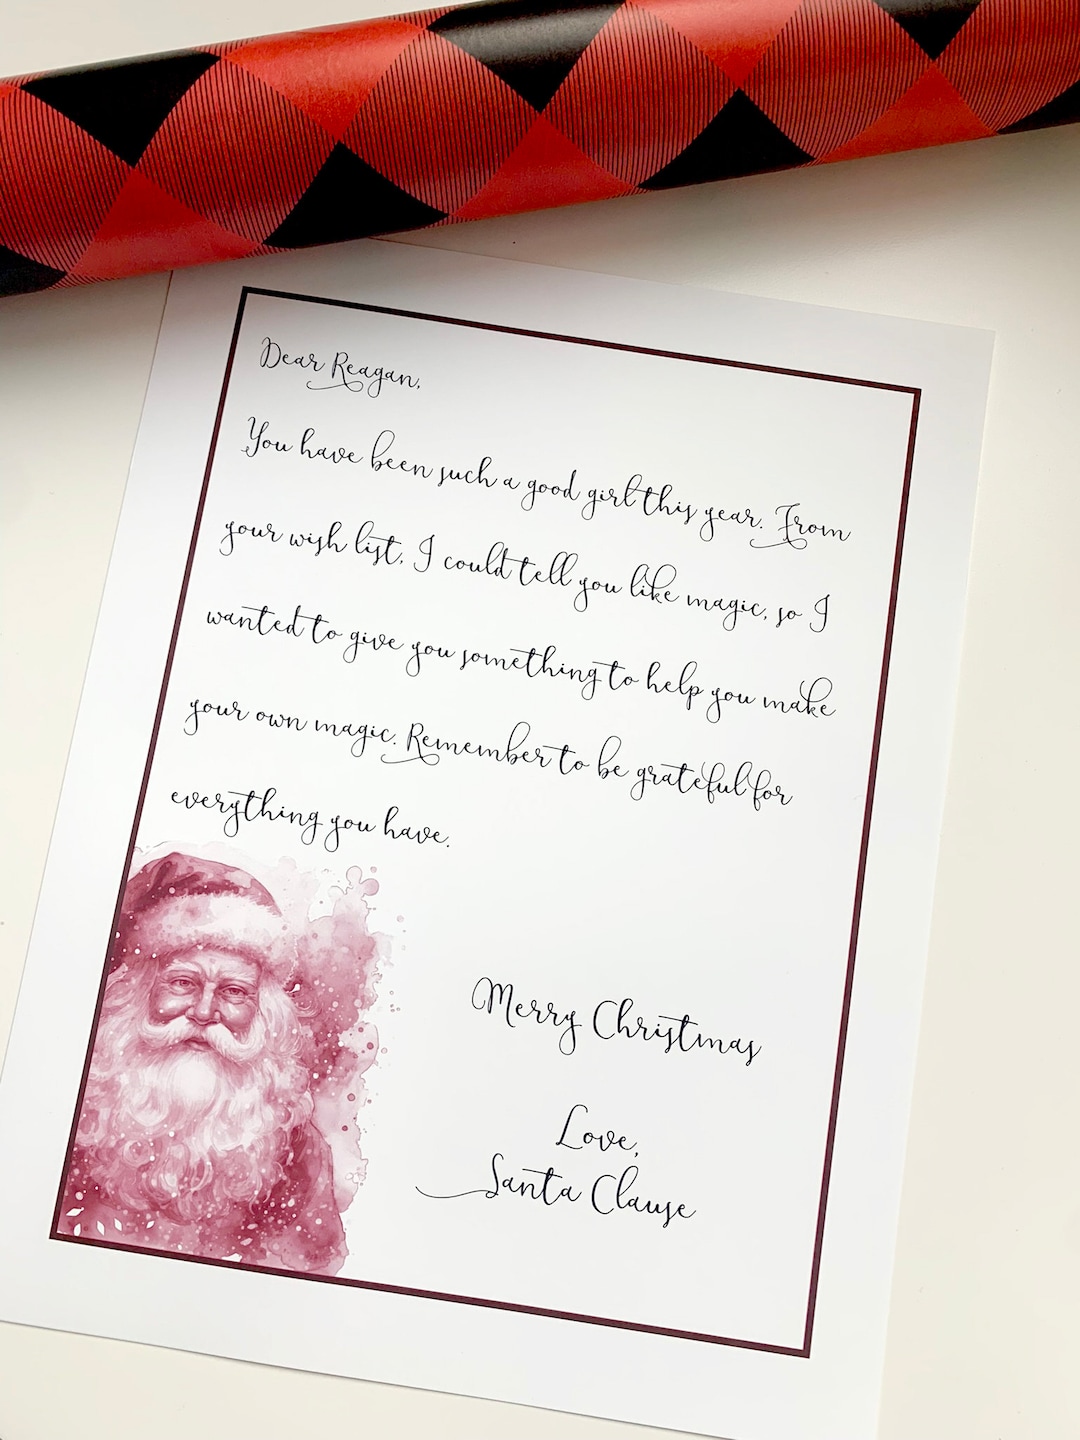 Dear Reagan,
You have been such a good girl this year. From
your wish list, I could tell you like magic, so I
wanted to give you something to help you make
your own magic. Remember to be grateful for
everything you have.
Merry Christmas
Love,
Santa Clause